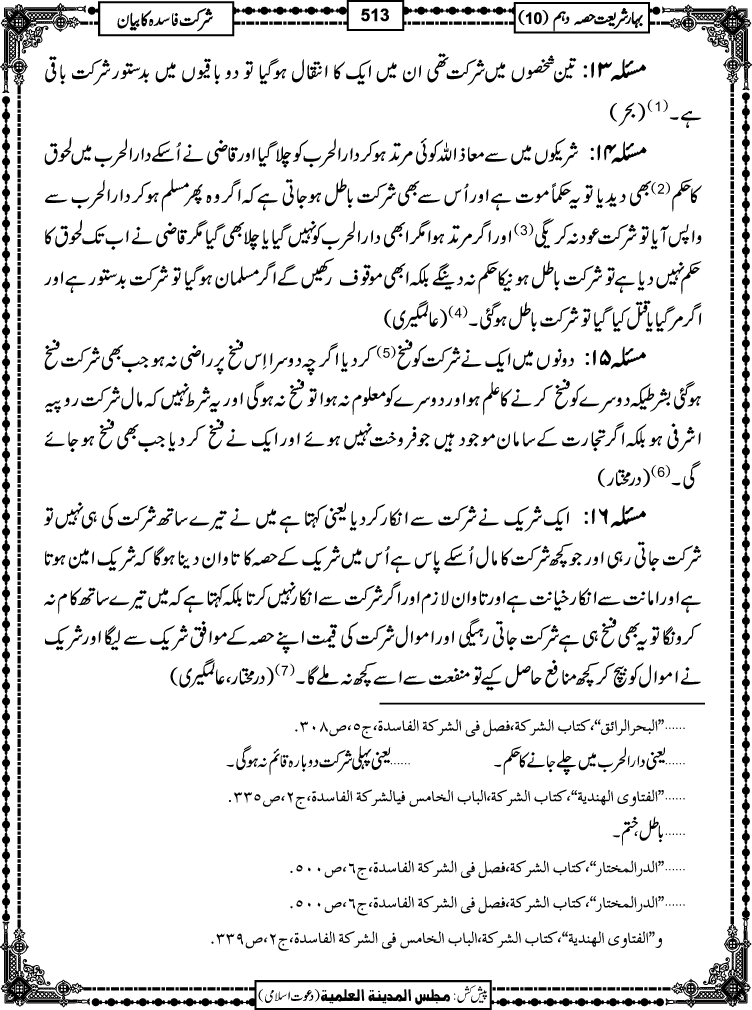 بہارشریعت حصہ دہم (10)
513
شرکت فاسدہ کا بیان
مسئلہ ۱۳: تین شخصوں میں شرکت تھی ان میں ایک کا انتقال ہوگیا تو دو باقیوں میں بدستور شرکت باقی
ہے۔(1) (بحر)
مسئلہ ۱۴: شریکوں میں سے معاذ اللہ کوئی مرتد ہوکر دارالحرب کو چلا گیا اور قاضی نے اُسکے دارالحرب میں لحوق
کا حکم(2) بھی دیدیا تو یہ حکماً موت ہے اور اُس سے بھی شرکت باطل ہوجاتی ہے کہ اگر وہ پھر مسلم ہوکر دارالحرب سے
واپس آیا تو شرکت عود نہ کریگی(3) اور اگر مرتد ہوا مگر ابھی دارالحرب کو نہیں گیا یا چلا بھی گیا مگر قاضی نے اب تک لحوق کا
حکم نہیں دیا ہے تو شرکت باطل ہونیکا حکم نہ دینگے بلکہ ابھی موقوف رکھیں گے اگر مسلمان ہوگیا تو شرکت بدستور ہے اور
اگر مرگیا یا قتل کیا گیا تو شرکت باطل ہوگئی۔(4) (عالمگیری)
مسئلہ ۱۵: دونوں میں ایک نے شرکت کو فسخ(5) کر دیا اگرچہ دوسرا اِس فسخ پر راضی نہ ہو جب بھی شرکت فسخ
ہوگئی بشرطیکہ دوسرے کو فسخ کرنے کا علم ہو اور دوسرے کو معلوم نہ ہوا تو فسخ نہ ہوگی اور یہ شرط نہیں کہ مال شرکت روپیہ
اشرفی ہو بلکہ اگر تجارت کے سامان موجود ہیں جو فروخت نہیں ہوئے اور ایک نے فسخ کر دیا جب بھی فسخ ہو جائے
گی۔(6) (درمختار)
مسئلہ ۱۶: ایک شریک نے شرکت سے انکار کر دیا یعنی کہتا ہے میں نے تیرے ساتھ شرکت کی ہی نہیں تو
شرکت جاتی رہی اور جو کچھ شرکت کا مال اُسکے پاس ہے اُس میں شریک کے حصہ کا تاوان دینا ہوگا کہ شریک امین ہوتا
ہے اور امانت سے انکار خیانت ہے اور تاوان لازم اور اگر شرکت سے انکار نہیں کرتا بلکہ کہتا ہے کہ میں تیرے ساتھ کام نہ
کرونگا تو یہ بھی فسخ ہی ہے شرکت جاتی رہیگی اور اموال شرکت کی قیمت اپنے حصہ کے موافق شریک سے لیگا اور شریک
نے اموال کو بیچ کر کچھ منافع حاصل کیے تو منفعت سے اسے کچھ نہ ملے گا۔(7) (درمختار، عالمگیری)
......”البحرالرائق“، کتاب الشرکة، فصل فی الشرکة الفاسدة، ج٥، ص٣٠٨.
......یعنی دارالحرب میں چلے جانے کا حکم۔ ......یعنی پہلی شرکت دوبارہ قائم نہ ہوگی۔
......”الفتاوی الهندیة“، کتاب الشرکة، الباب الخامس فیالشرکة الفاسدة، ج٢، ص٣٣٥.
......باطل، ختم۔
......”الدرالمختار“، کتاب الشرکة، فصل فی الشرکة الفاسدة، ج٦، ص٥٠٠.
......”الدرالمختار“، کتاب الشرکة، فصل فی الشرکة الفاسدة، ج٦، ص٥٠٠.
و”الفتاوی الهندیة“، کتاب الشرکة، الباب الخامس فی الشرکة الفاسدة، ج٢، ص٣٣٩.
پیش کش: مجلس المدینة العلمیة (دعوت اسلامی)